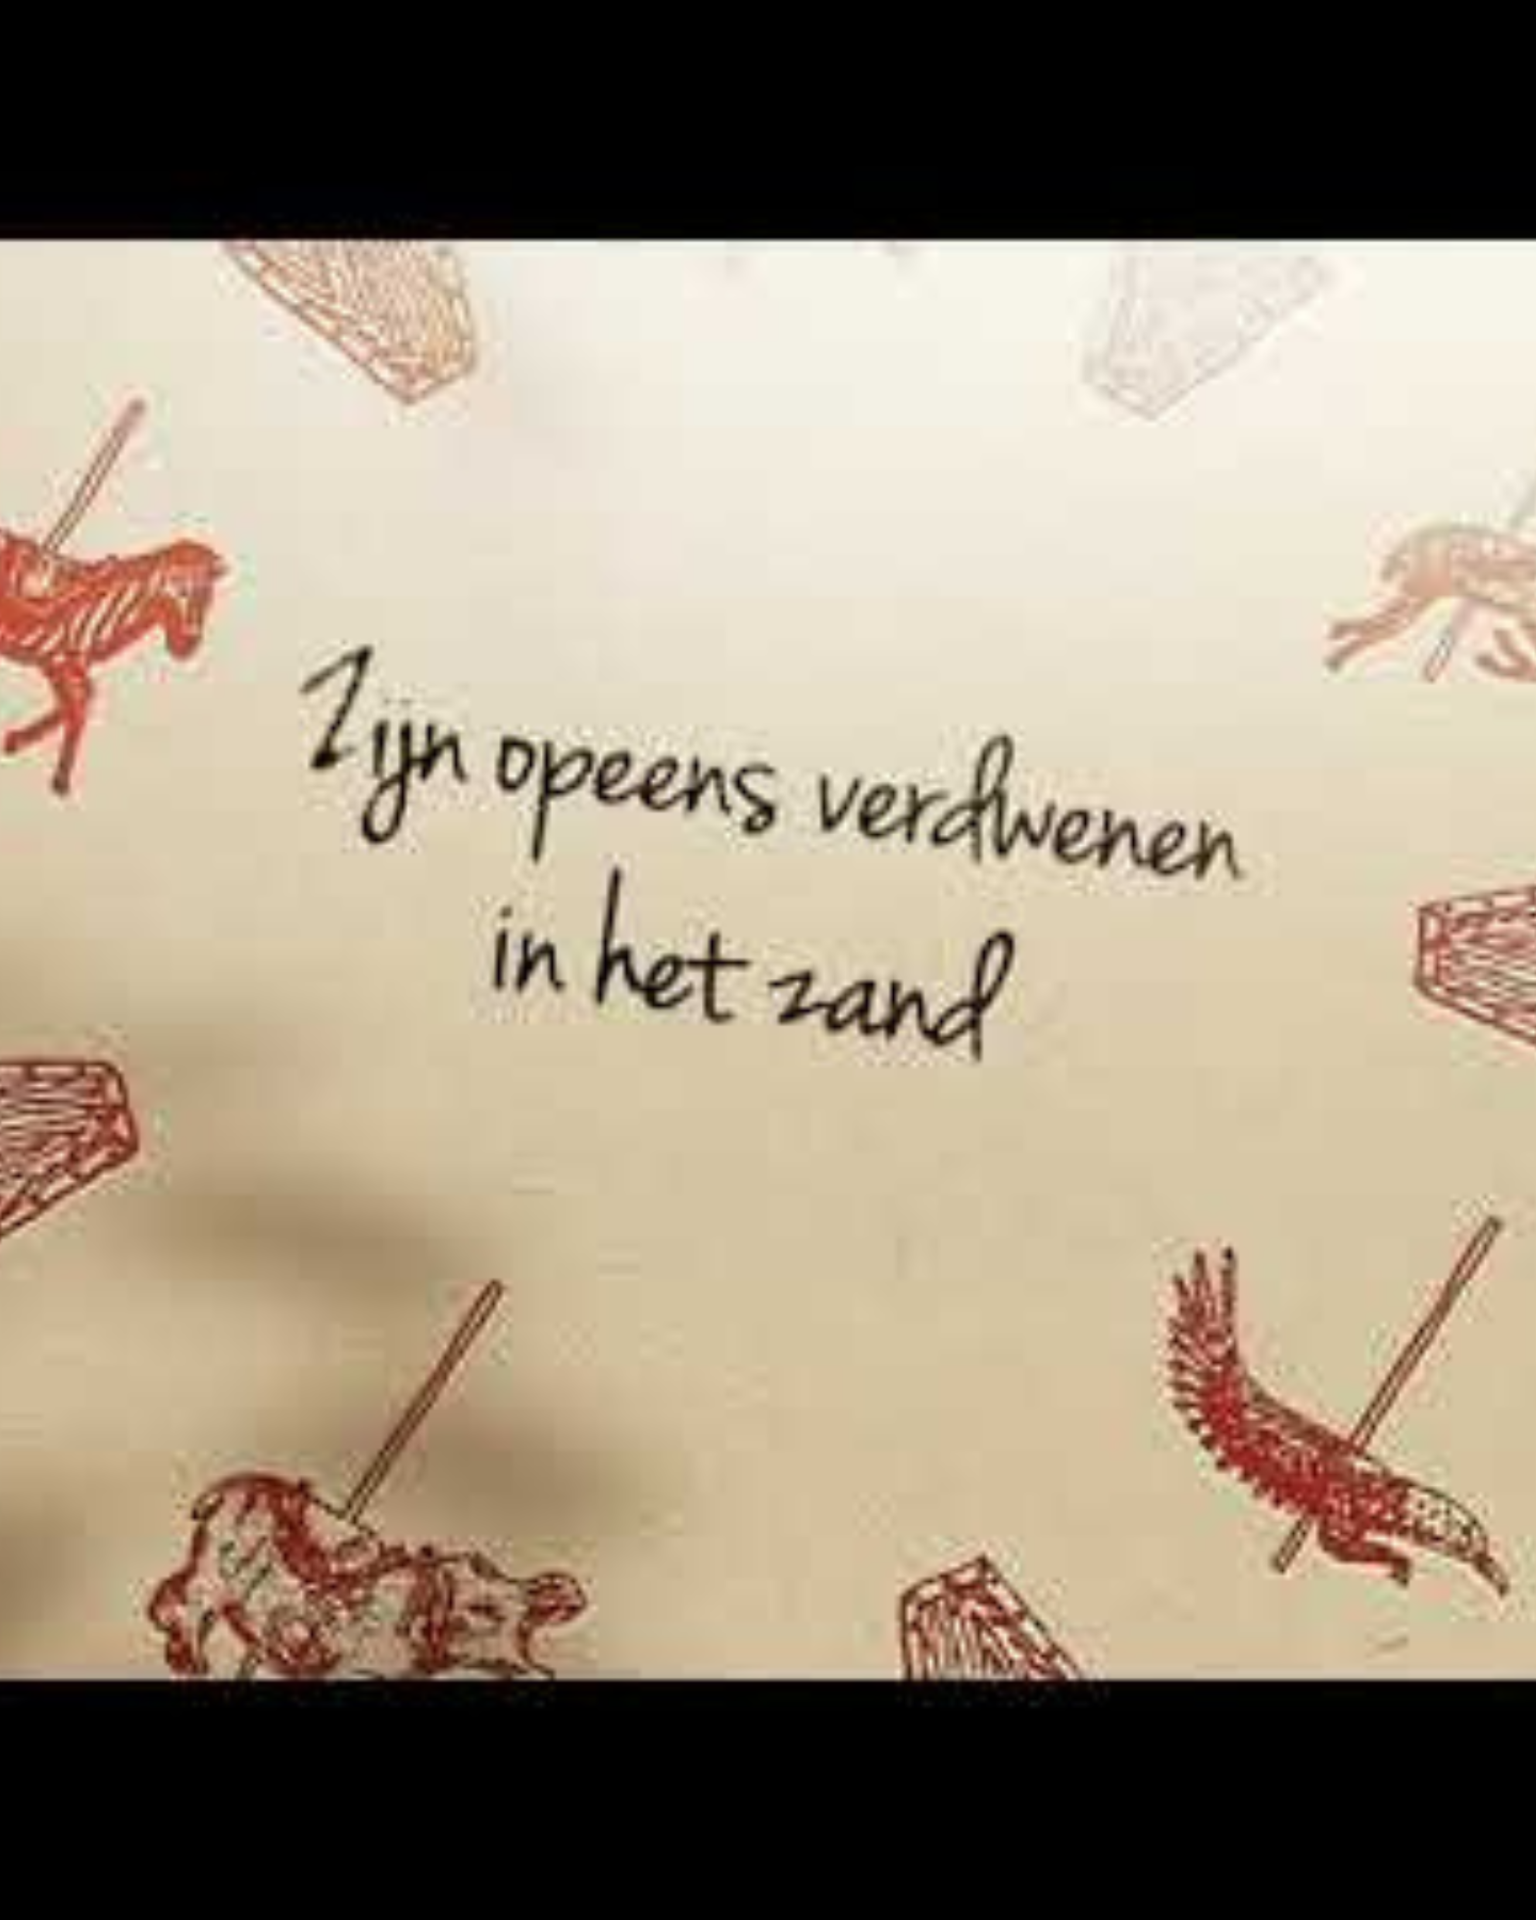 Zijn opeens verdwenen
in het zand